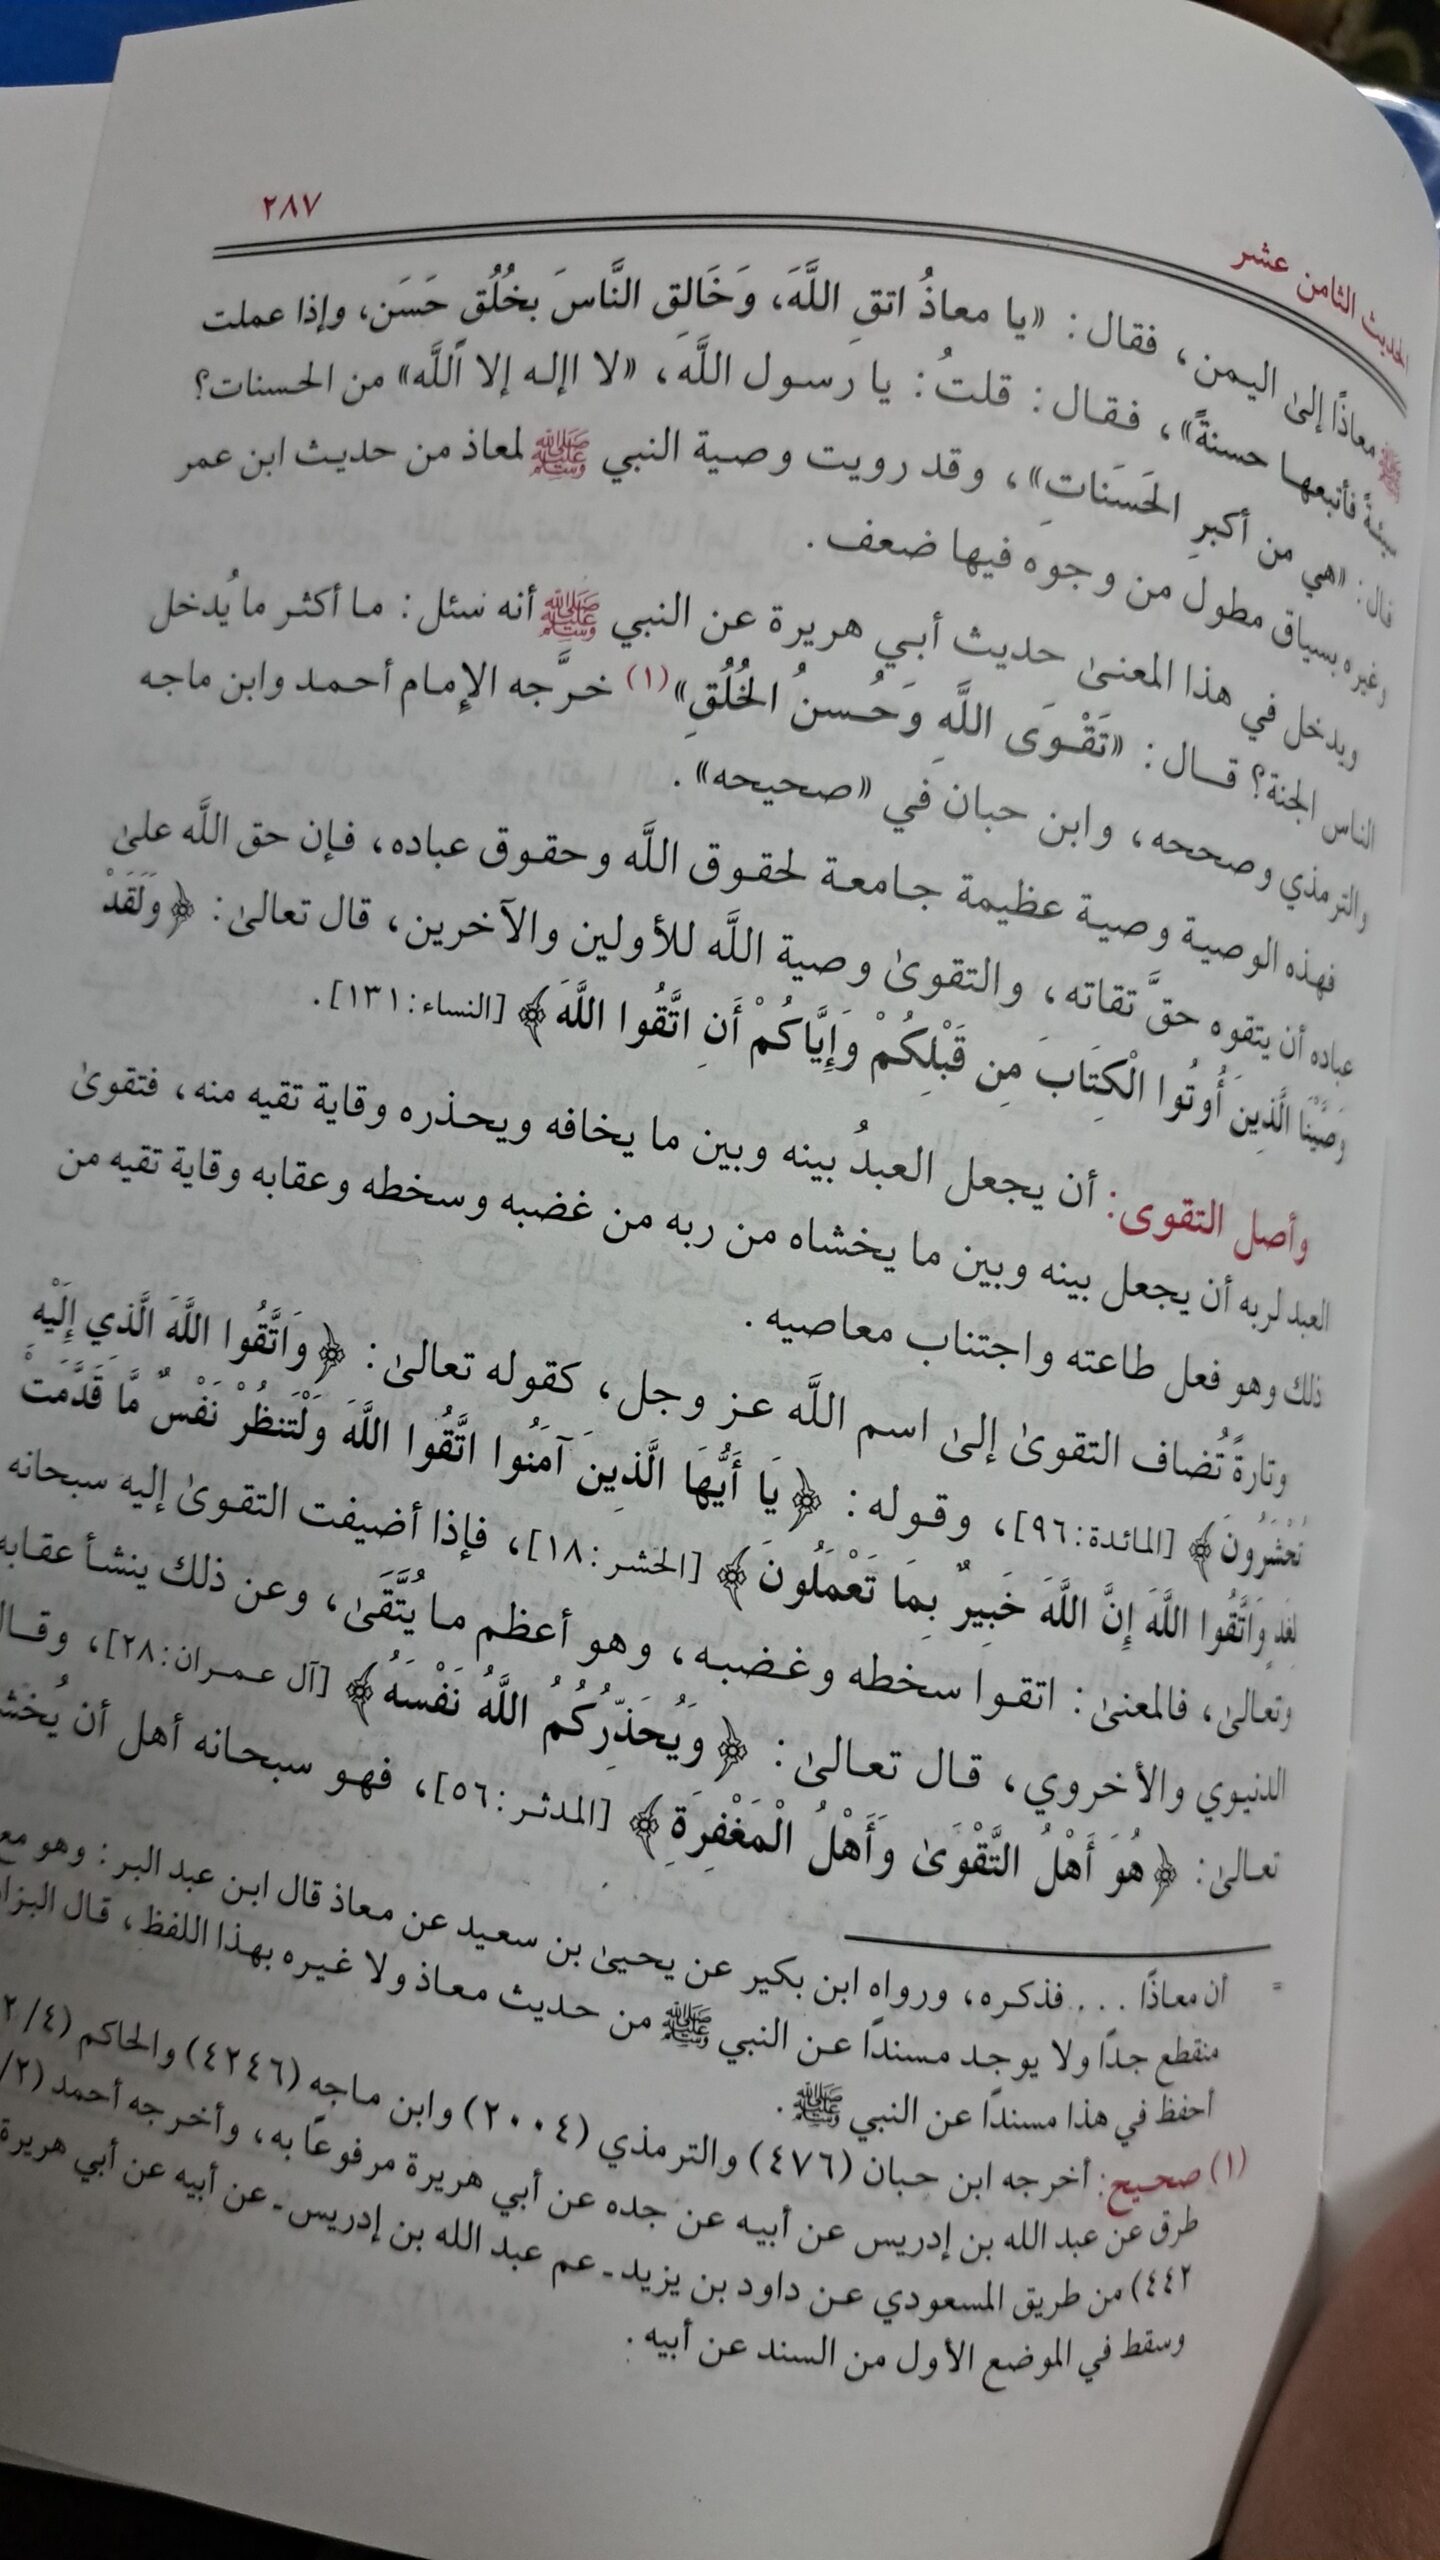 الحديث الثامن عشر ٢٨٧
ﷺ معاذًا إلى اليمن، فقال: «يا معاذُ اتقِ اللَّهَ، وَخَالِقِ النَّاسَ بخُلُقٍ حَسَن، وإذا عملت
سيئةً فأتبعها حسنةً»، فقال: قلتُ: يا رسول اللَّه، «لا اإله إلا اللَّه» من الحسنات؟
قال: «هي من أكبرِ الحَسَنَاتِ»، وقد رويت وصية النبي ﷺ لمعاذ من حديث ابن عمر
وغيره بسياق مطول من وجوه فيها ضعف.
ويدخل في هذا المعنىٰ حديث أبي هريرة عن النبي ﷺ أنه سئل: ما أكثر ما يُدخل
الناس الجنة؟ قال: «تَقْوَى اللَّهِ وَحُسنُ الخُلُقِ»(١) خرَّجه الإمام أحمد وابن ماجه
والترمذي وصححه، وابن حبان في «صحيحه».
فهذه الوصية وصية عظيمة جامعة لحقوق اللَّه وحقوق عباده، فإن حق اللَّه علىٰ
عباده أن يتقوه حقَّ تقاته، والتقوىٰ وصية اللَّه للأولين والآخرين، قال تعالىٰ: ﴿وَلَقَدْ
وَصَّيْنَا الَّذِينَ أُوتُوا الْكِتَابَ مِن قَبْلِكُمْ وَإِيَّاكُمْ أَنِ اتَّقُوا اللَّهَ﴾ [النساء: ١٣١].
وأصل التقوى: أن يجعل العبدُ بينه وبين ما يخافه ويحذره وقاية تقيه منه، فتقوىٰ
العبد لربه أن يجعل بينه وبين ما يخشاه من ربه من غضبه وسخطه وعقابه وقاية تقيه من
ذلك وهو فعل طاعته واجتناب معاصيه.
وتارةً تُضاف التقوىٰ إلىٰ اسم اللَّه عز وجل، كقوله تعالىٰ: ﴿وَاتَّقُوا اللَّهَ الَّذِي إِلَيْهِ
تُحْشَرُونَ﴾ [المائدة: ٩٦]، وقوله: ﴿يَا أَيُّهَا الَّذِينَ آمَنُوا اتَّقُوا اللَّهَ وَلْتَنظُرْ نَفْسٌ مَّا قَدَّمَتْ
لِغَدٍ وَاتَّقُوا اللَّهَ إِنَّ اللَّهَ خَبِيرٌ بِمَا تَعْمَلُونَ﴾ [الحشر: ١٨]، فإذا أضيفت التقوىٰ إليه سبحانه
وتعالىٰ، فالمعنىٰ: اتقوا سخطه وغضبه، وهو أعظم ما يُتَّقَىٰ، وعن ذلك ينشأ عقابه
الدنيوي والأخروي، قال تعالىٰ: ﴿وَيُحَذِّرُكُمُ اللَّهُ نَفْسَهُ﴾ [آل عمران: ٢٨]، وقال
تعالىٰ: ﴿هُوَ أَهْلُ التَّقْوَىٰ وَأَهْلُ الْمَغْفِرَةِ﴾ [المدثر: ٥٦]، فهو سبحانه أهل أن
= أن معاذًا ... فذكره، ورواه ابن بكير عن يحيىٰ بن سعيد عن معاذ قال ابن عبد البر: وهو
منقطع جدًا ولا يوجد مسندًا عن النبي ﷺ من حديث معاذ ولا غيره بهذا اللفظ، قال
أحفظ في هذا مسندًا عن النبي ﷺ.
(١) صحيح: أخرجه ابن حبان (٤٧٦) والترمذي (٢٠٠٤) وابن ماجه (٤٢٤٦) والحاكم (
طرق عن عبد الله بن إدريس عن أبيه عن جده عن أبي هريرة مرفوعًا به، وأخرجه أحمد (
٤٤٢) من طريق المسعودي عن داود بن يزيد ـ عم عبد الله بن إدريس ـ عن أبيه عن أبي هريرة
وسقط في الموضع الأول من السند عن أبيه.